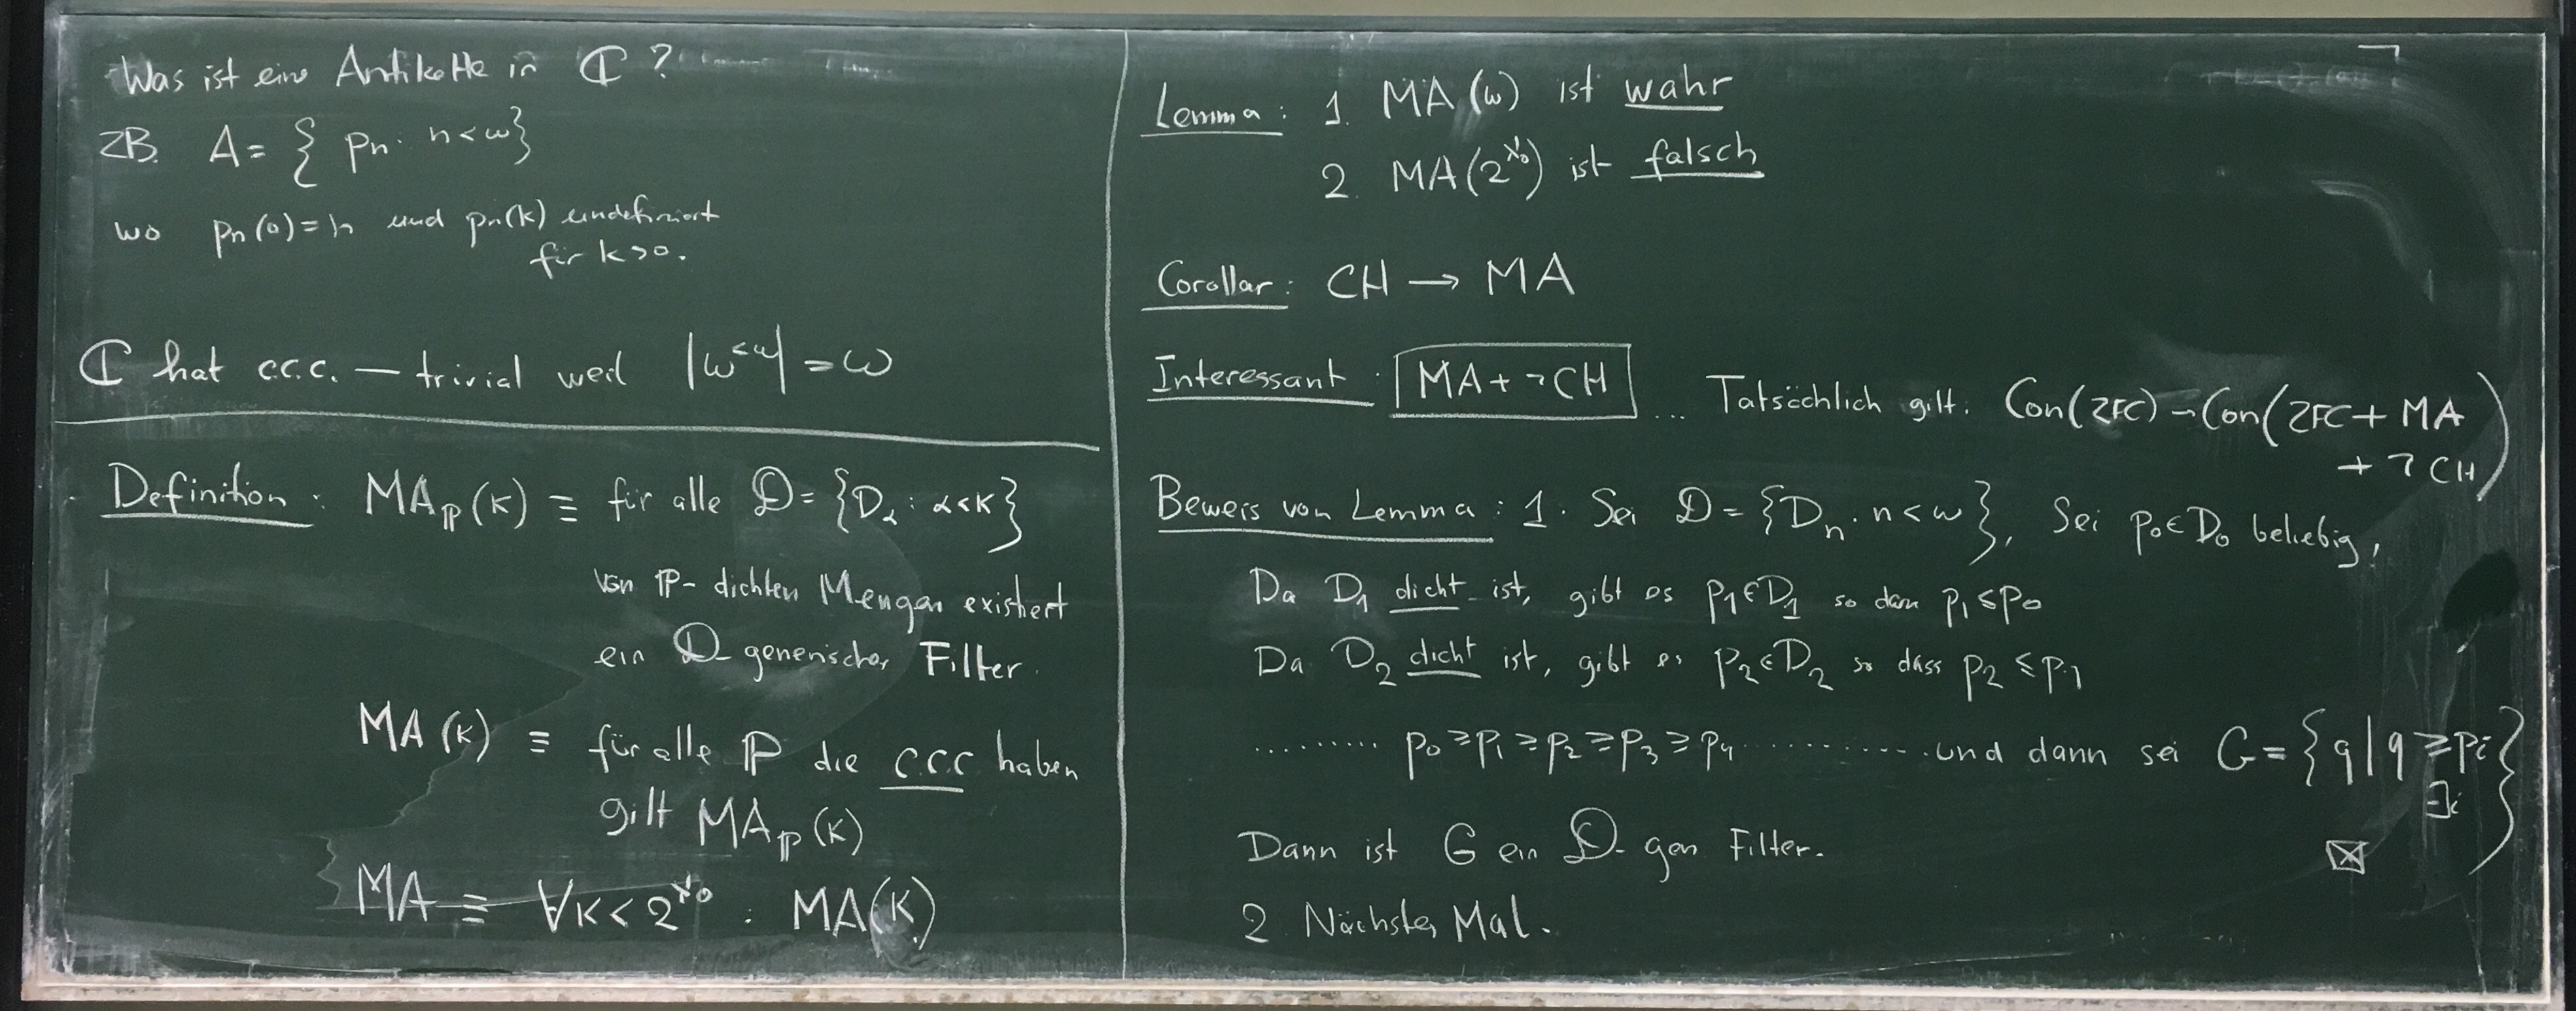 Was ist eine Antikette in ℂ ?
ZB. A = { pn : n < ω }
wo pn(0) = n und pn(k) undefiniert
für k > 0.
ℂ hat c.c.c. — trivial weil |ω^{<ω}| = ω
Definition : MA_ℙ(κ) ≡ für alle 𝒟 = {D_α : α < κ}
von ℙ- dichten Mengen existiert
ein 𝒟- generischer Filter.
MA(κ) ≡ für alle ℙ die ccc haben
gilt MA_ℙ(κ)
MA ≡ ∀κ < 2^{ℵ0} : MA(κ)
Lemma : 1. MA(ω) ist wahr
2. MA(2^{ℵ0}) ist falsch
Corollar : CH → MA
Interessant : MA + ¬CH ... Tatsächlich gilt: Con(ZFC) → Con(ZFC + MA
+ ¬CH)
Beweis von Lemma : 1. Sei 𝒟 = {D_n : n < ω}, Sei p_0 ∈ D_0 beliebig,
Da D_1 dicht ist, gibt es p_1 ∈ D_1 so dass p_1 ≤ p_0
Da D_2 dicht ist, gibt es p_2 ∈ D_2 so dass p_2 ≤ p_1
.......... p_0 ≥ p_1 ≥ p_2 ≥ p_3 ≥ p_4 ............ und dann sei G = {q | q ≥ p_i
∃i}
Dann ist G ein 𝒟- gen Filter. ⊠
2 Nächstes Mal.